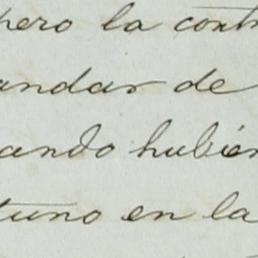 pero la contr
andar de
ando hubier
tuno en la